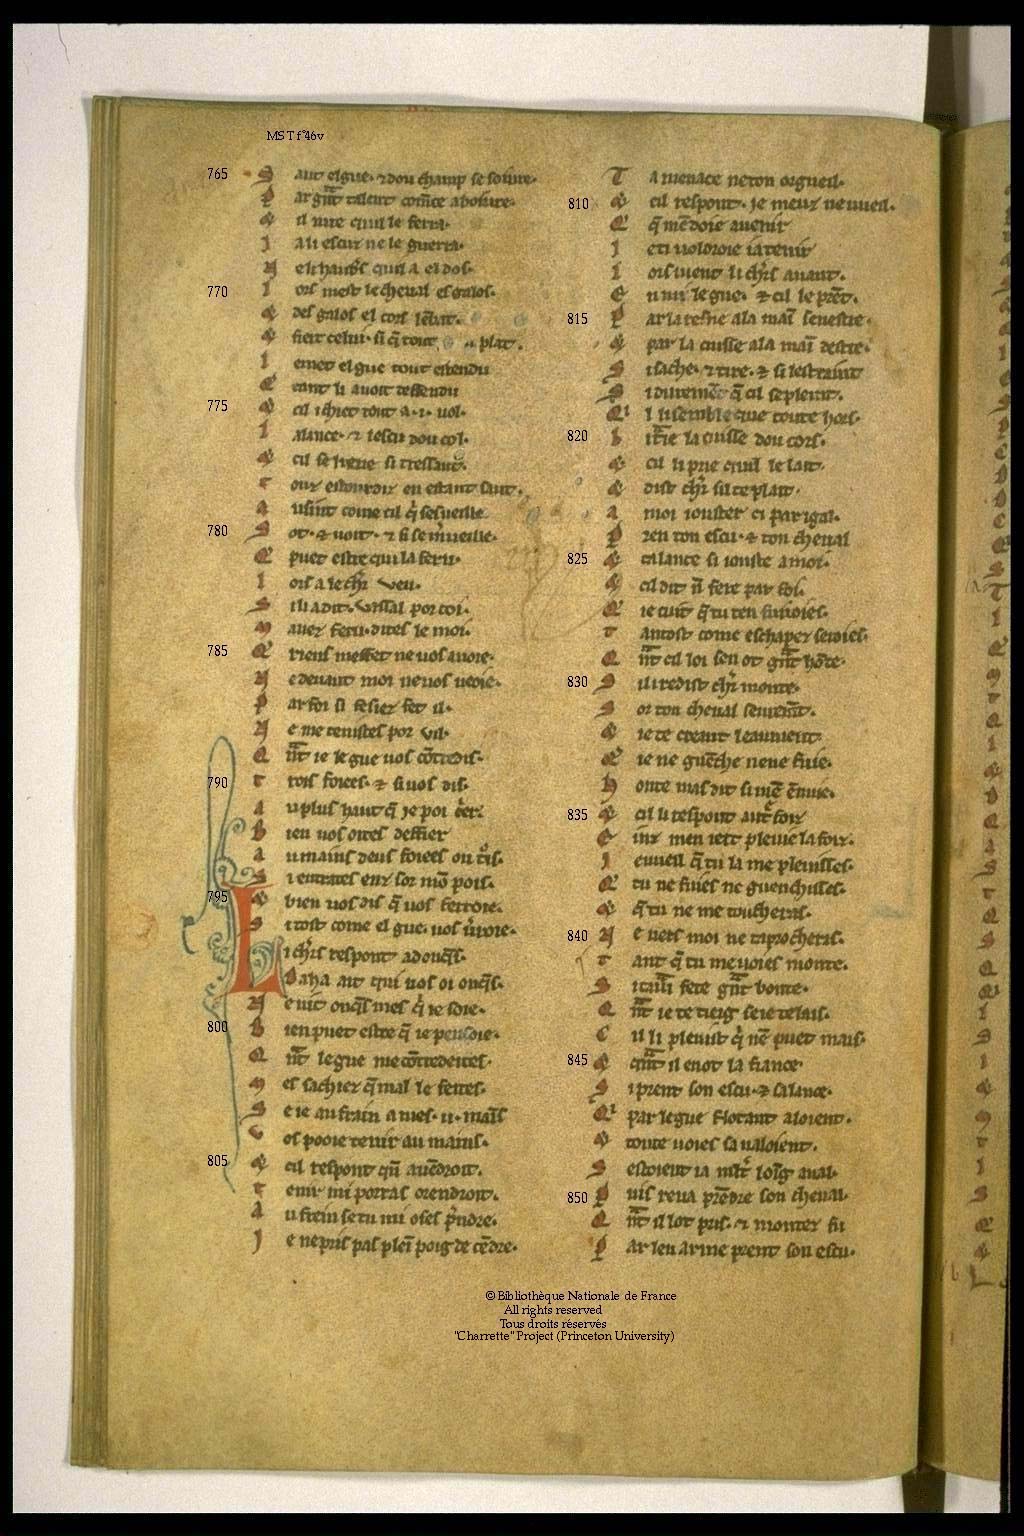 MS T f°46v
765 S aut el gue · ⁊ dou champ se soiure ·
P ar gn̄t talent com̄ce a boiure ·
⁊ il iure quil le ferra ·
J a li escuz ne le guerra ·
N e li haub's quil a el dos ·
770 L ors mest le cheual es galos ·
⁊ des galos el cors
⁊ fiert celui · si q̄ tout plat ·
L emet el gue tout estendu
Q eant li auoit deffendu
775 ⁊ cil i chiet tout a · i · uol ·
L a lance · ⁊ lescu dou col ·
⁊ cil se lieue si tressaut ·
T ouz estourdiz en estant saut ·
A usint come cil q' sesueille
780 S ot · ⁊ uoit · ⁊ si se m'ueille ·
Q puet estre qui la feru ·
L ors a le chr̄ veu ·
S i li a dit · Vassal por coi ·
M auez feru · dites le moi ·
785 Q riens meffet ne uos auoie ·
N e deuant moi ne uos ueoie ·
P ar foi si fesiez fet il ·
N e me tenistes por vil ·
Q n̄t ie le gue uos cōtredis ·
790 T rois foiees · ⁊ si uos dis ·
A u plus haut q̄ je poi
B ien uos oites deffier
A u mains deus foiees ou t'is ·
S i entrates enz sor mō pois ·
795 ⁊ bien uos dis q̄ uos ferroie ·
S i tost come el gue · uos u'roie ·
L i chrs respont adonq̄s ·
D aha ait qui uos oi onq̄s ·
N e vit onq̄s mes q' ie soie ·
800 B ien puet estre q̄ ie pensoie ·
Q n̄t le gue me cōtredeites ·
M es sachiez q̄ mal le feites ·
S e ie au frain a mes · ii · mais
V os pooie tenir au mains ·
805 ⁊ cil respont qn̄ auēdroit ·
T enir mi porras orendroit ·
A u frein se tu mi oses p'ndre ·
J e ne pris pas plei poig de cēdre ·
T a menace ne ton orgueil ·
810 ⁊ cil respont · je meuz ne uueil ·
Q q̄ mē doie auenir
J e ti uoldroie ia tenir
L ors uient li chrs auant ·
E n mi le gue · ⁊ cil le prēt ·
815 P ar la resne a la mai senestre ·
⁊ par la cuisse a la mai destre ·
S i sache · ⁊ tire · ⁊ si lestraint
S i duremēt q̄ cil se pleint ·
Q' l li semble que toute hors ·
820 L i trēe la cuisse dou cors ·
⁊ cil li prie quil le lait
⁊ dist chr̄ sil te plait ·
A moi iouster ci par igal ·
P ren ton escu · ⁊ ton cheual
825 ⁊ ta lance si iouste a moi ·
⁊ cil dit n̄ fere par foi ·
Q ie cuit q̄ tu ten fuiroies ·
T antost come eschapez seroies ·
Q n̄t cil loi sen ot gn̄t hōte ·
830 S i li redist chr̄ monte ·
S or ton cheual seurem̄t ·
⁊ ie te creant leaument
Q ie ne guēche ne ne fuie ·
H onte mas dit si mē ēnuie ·
835 ⁊ cil li respont aut' foiz
E inz men iert pleuie la foiz ·
J e uueil q̄ tu la me pleuisses ·
Q tu ne fuies ne guenchisses ·
⁊ q̄ tu ne me toucheras ·
840 N e uers moi ne taprocheras ·
T ant q̄ tu me uoies monte ·
S i taurai fete gn̄t bonte ·
Q n̄t ie te tieig se ie te lais ·
C il li pleuist q' nē puet mais ·
845 ⁊ qn̄t il enot la fiance
S i prent son escu · ⁊ sa lance ·
Q' par le gue flotant aloient ·
⁊ toute uoies saualoient ·
S estoient ia mlt' loig aual ·
850 P uis reua prēdre son cheual ·
Q n̄t il lot pris · ⁊ montez fu
P ar leu arme prent son escu ·
©Bibliothèque Nationale de France
All rights reserved
Tous droits réservés
"Charrette" Project (Princeton University)